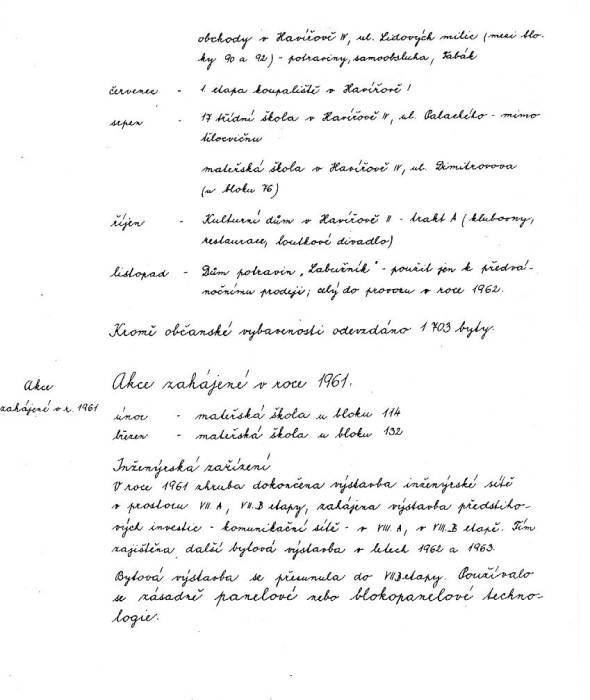 obchody v Havířově IV, ul. Lidových milic (mezi blo-
ky 90 a 92) - potraviny, samoobsluha, Tabák
červenec - 1 etapa koupaliště v Havířově I
srpen - 17 třídní škola v Havířově IV, ul. Palackého - mimo
tělocvičnu
mateřská škola v Havířově IV, ul. Dimitrovova
(u bloku 76)
říjen - Kulturní dům v Havířově II - trakt A (klubovny,
restaurace, loutkové divadlo)
listopad - Dům potravin "Labužník" - použit jen k předvá-
nočnímu prodeji; celý do provozu v roce 1962.
Kromě občanské vybavenosti odevzdáno 1 703 byty.
Akce
zahájené v r. 1961
Akce zahájené v roce 1961.
únor - mateřská škola u bloku 114
březen - mateřská škola u bloku 132
Inženýrská zařízení
V roce 1961 zhruba dokončena výstavba inženýrské sítě
v prostoru VII. A, VII. B etapy, zahájena výstavba předstiho-
vých investic - komunikační sítě - v VIII. A, v VIII. B etapě. Tím
zajištěna další bytová výstavba v letech 1962 a 1963.
Bytová výstavba se přesunula do VII.B etapy. Používalo
se zásadně panelové nebo blokopanelové techno-
logie.